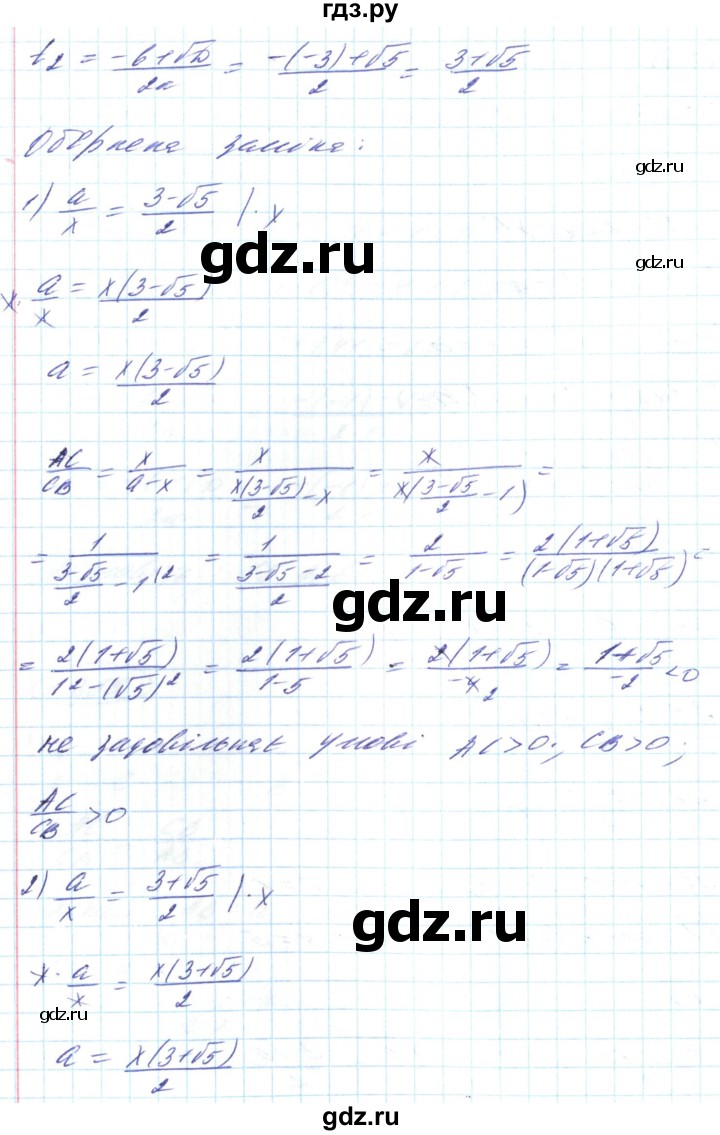 гдз.ру
t₂ = (-b+√D)/2a = (-(-3)+√5)/2 = (3+√5)/2
Обернена заміна:
gdz.ru
1) a/x = (3-√5)/2 |·x
gdz.ru
gdz.ru
x· a/x = x(3-√5)/2
a = x(3-√5)/2
AC/CB = x/(a-x) = x/(x(3-√5)/2 - x) = x/(x((3-√5)/2 - 1)) =
= 1/((3-√5)/2 - 1\²) = 1/((3-√5-2)/2) = 2/(1-√5) = 2(1+√5)/((1-√5)(1+√5)) =
gdz.ru
= 2(1+√5)/(1²-(√5)²) = 2(1+√5)/(1-5) = 2(1+√5)/-4 ₂ = (1+√5)/-2 < 0
не задовільняє умові AC>0; CB>0;
AC/CB > 0
2) a/x = (3+√5)/2 |·x
gdz.ru
x· a/x = x(3+√5)/2
gdz.ru
gdz.ru
a = x(3+√5)/2
gdz.ru